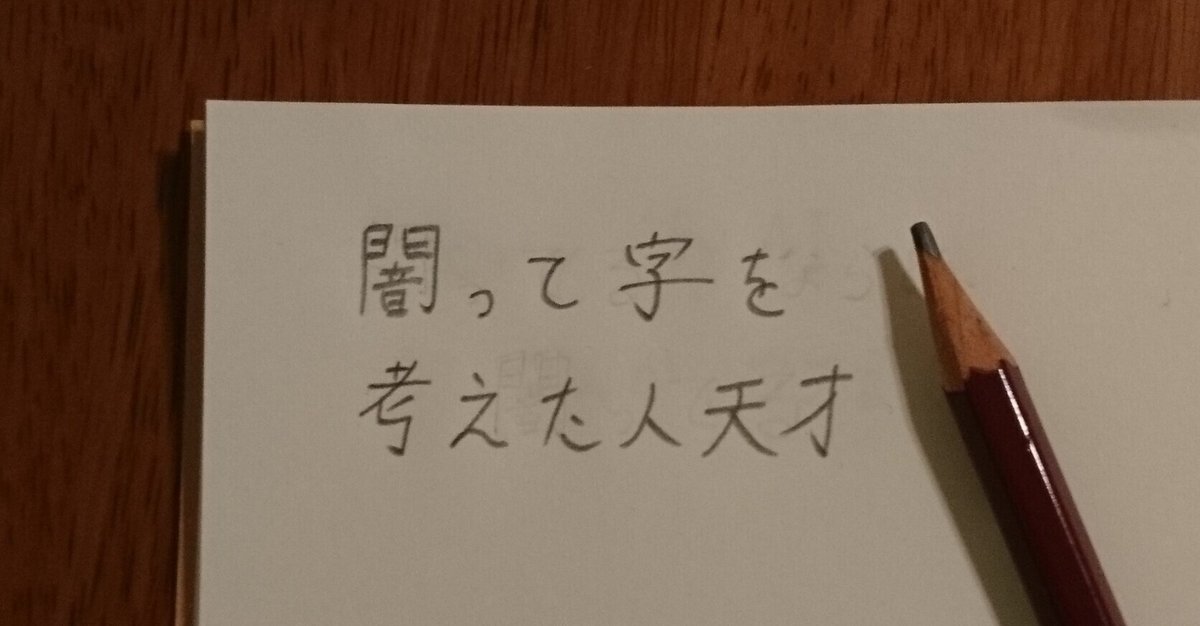 闇って字を
考えた人天才